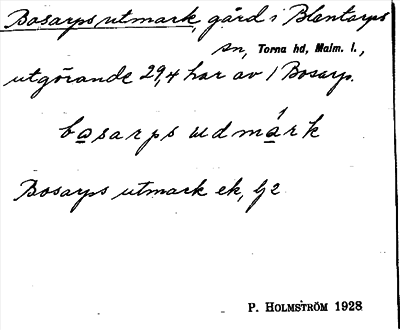 Bosarps utmark, gård i Blentarps
sn, Torna hd, Malm. l.,
utgörande 29,4 har av 1 Bosarp.
bosarps udmárk
Bosarps utmark ek, bj 2
P. HOLMSTRÖM 1928